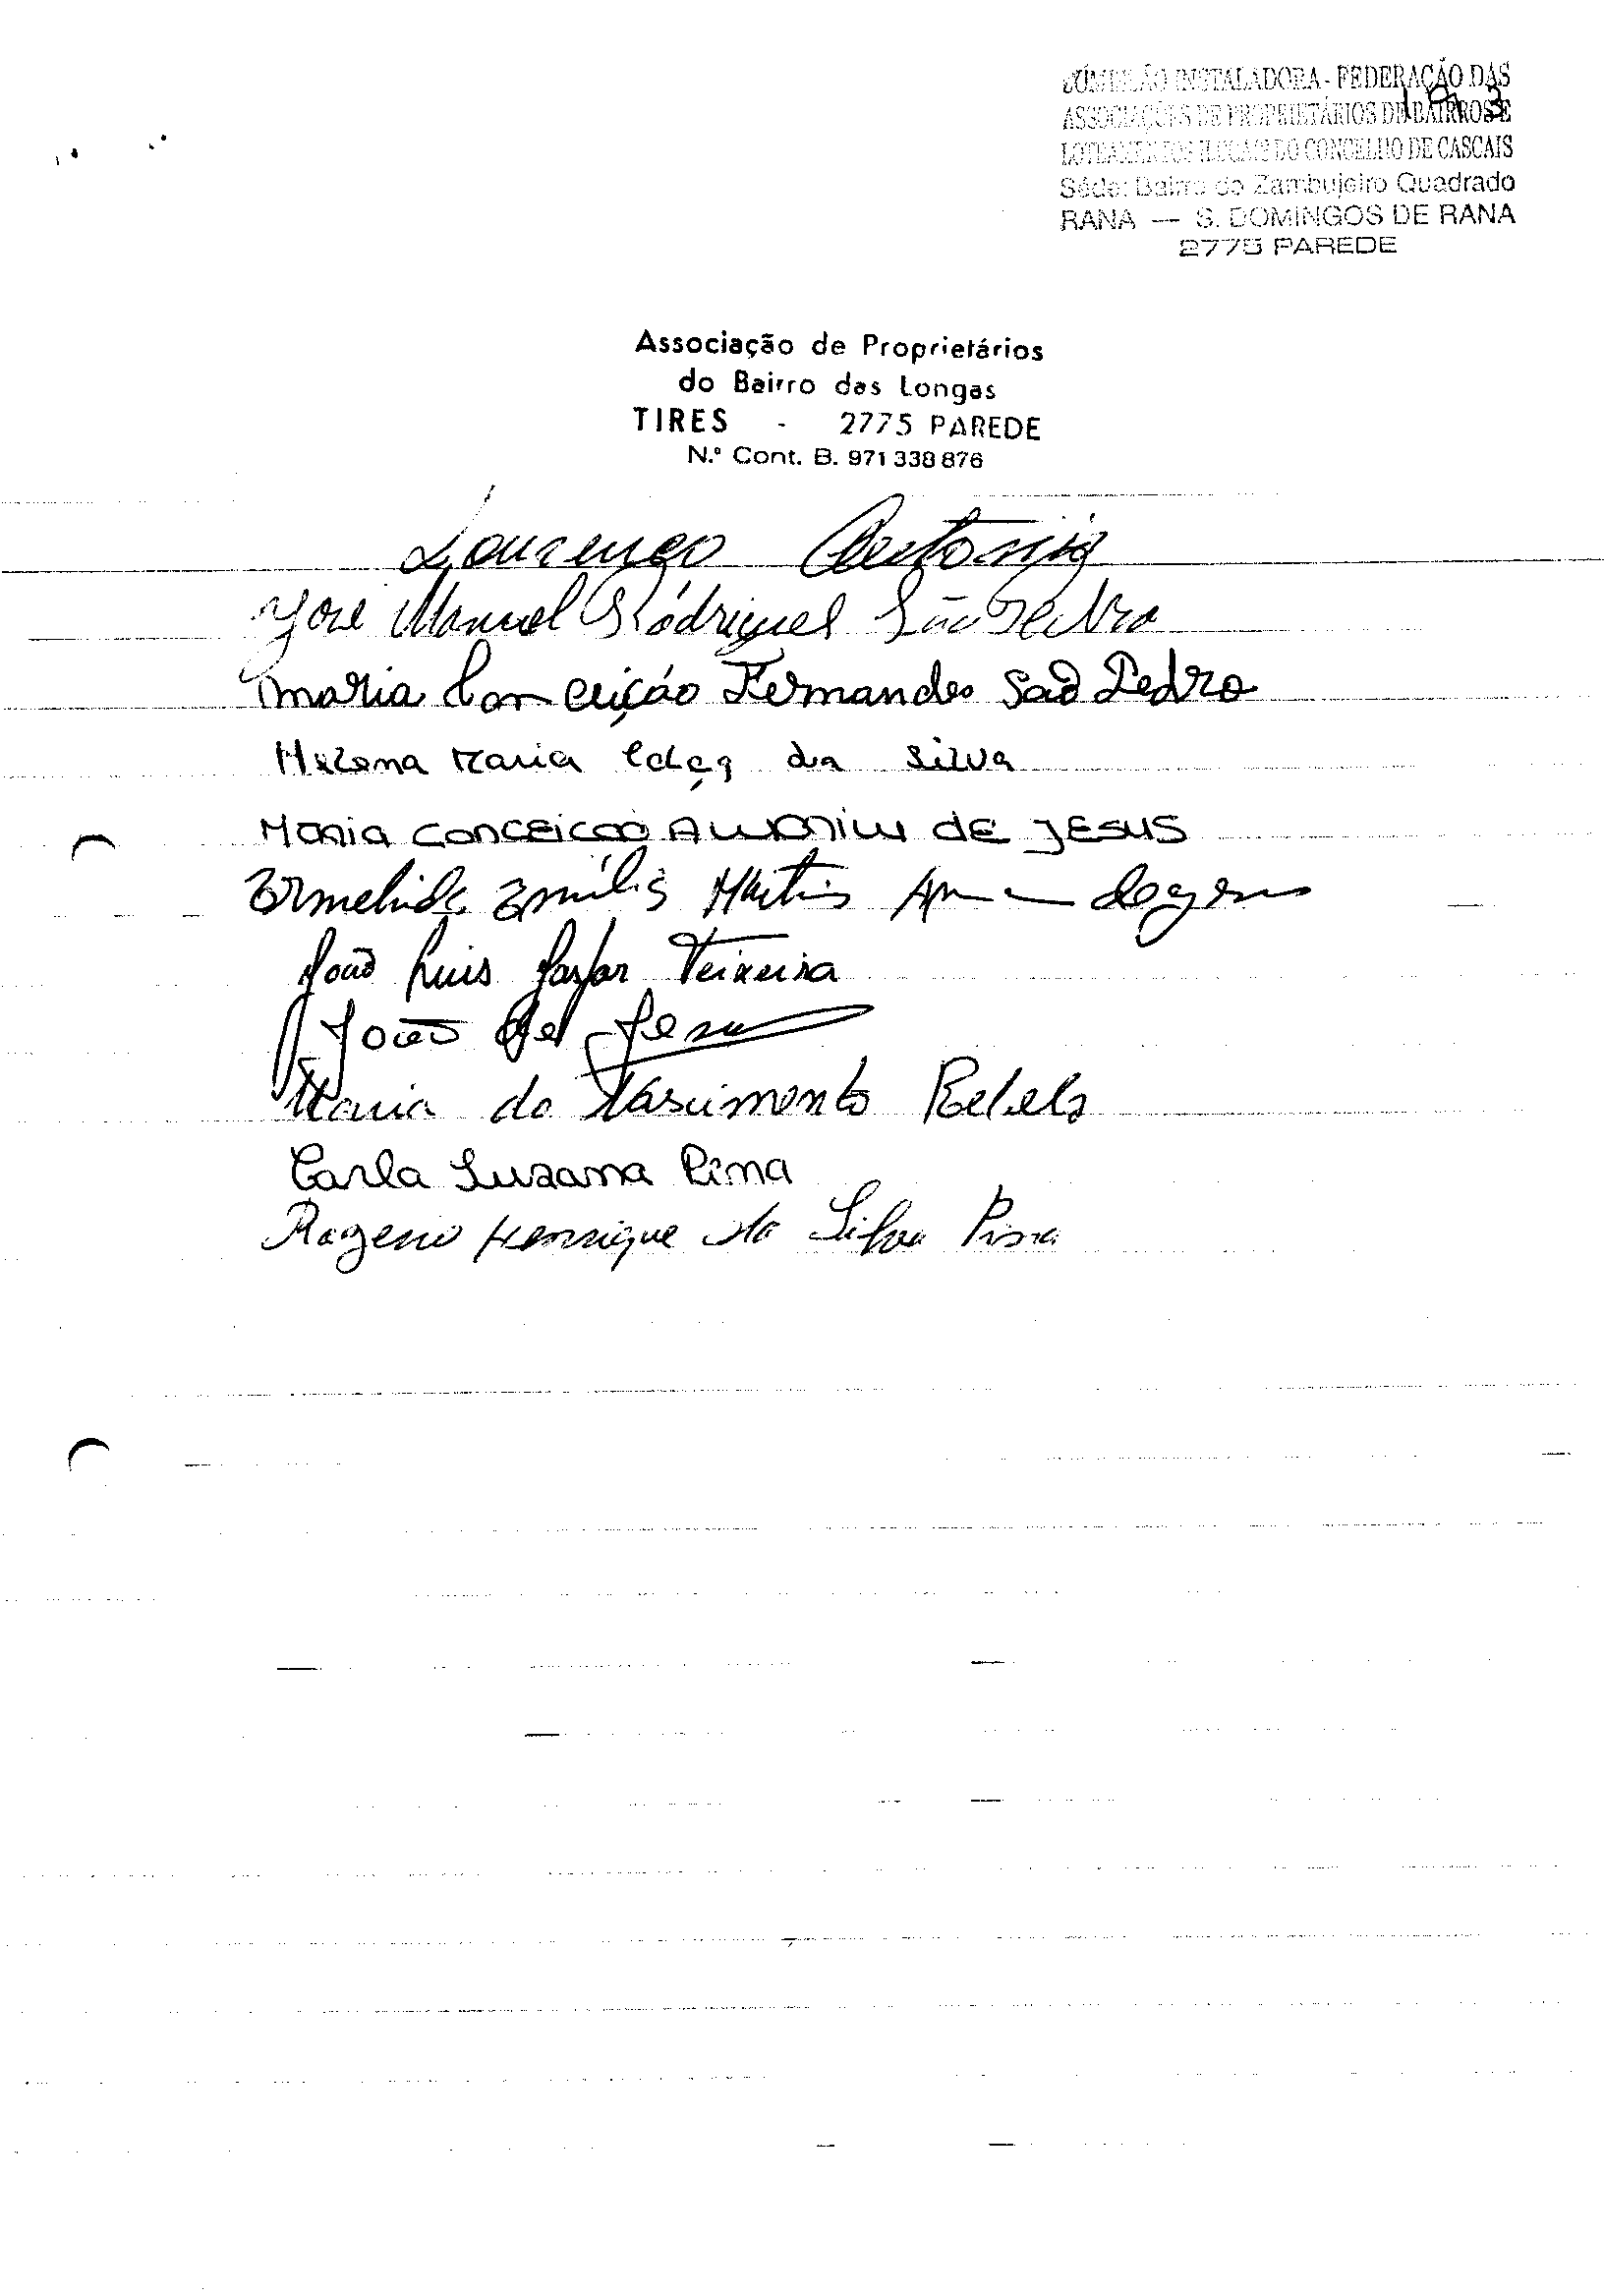 COMISSÃO INSTALADORA - FEDERAÇÃO DAS
ASSOCIAÇÕES DE PROPRIETÁRIOS DE BAIRROS E
LOTEAMENTOS ILEGAIS DO CONCELHO DE CASCAIS
Séde: Bairro do Zambujeiro Quadrado
RANA — S. DOMINGOS DE RANA
2775 PAREDE
Associação de Proprietários
do Bairro das Longas
TIRES - 2775 PAREDE
N.º Cont. B. 971 338 876
Lourenço Antonio
José Manuel Rodrigues São Pedro
Maria Conceição Fernandes São Pedro
Helena Maria da Silva
Maria Conceicao DE JESUS
Ermelinda Emília Martins
João Luis Gaspar Teixeira
João de Jesus
Maria do Nascimento Rebelo
Carla Suzana Pina
Rogerio Henrique da Silva Pina